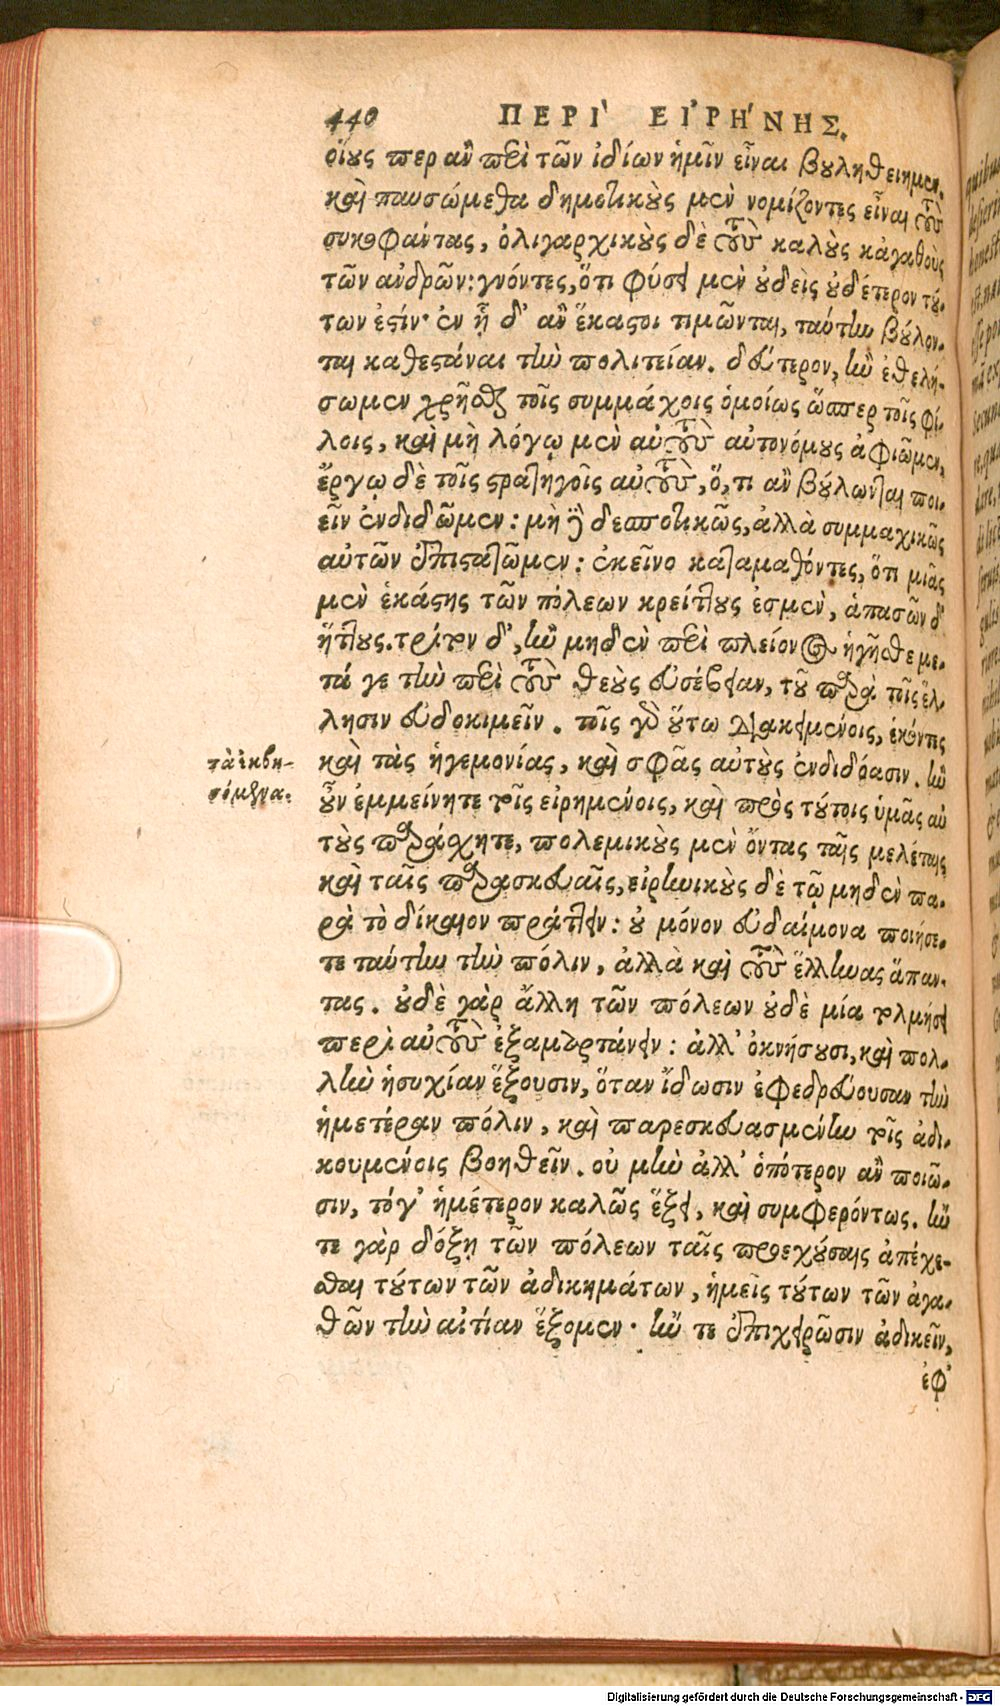 440 ΠΕΡῚ ΕἸΡΉΝΗΣ.
οἵους περ ἂν περὶ τῶν ἰδίων ἡμῖν εἶναι βουληθείημεν.
καὶ παυσώμεθα δημοτικοὺς μὲν νομίζοντες εἶναι τοὺς
συκοφάντας, ὀλιγαρχικοὺς δὲ τοὺς καλοὺς κἀγαθοὺς
τῶν ἀνδρῶν: γνόντες, ὅτι φύσει μὲν οὐδεὶς οὐδέτερον τού-
των ἐστίν· ἐν ᾗ δ' ἂν ἕκαστοι τιμῶνται, ταύτην βούλον-
ται καθεστάναι τὴν πολιτείαν. δεύτερον, ἢν ἐθελή-
σωμεν χρῆσθαι τοῖς συμμάχοις ὁμοίως ὥσπερ τοῖς φί-
λοις, καὶ μὴ λόγῳ μὲν αὐτοὺς αὐτονόμους ἀφιῶμεν,
ἔργῳ δὲ τοῖς στρατηγοῖς αὐτοὺς, ὅ,τι ἂν βούλωνται ποι-
εῖν ἐνδιδῶμεν: μὴ δὲ δεσποτικῶς, ἀλλὰ συμμαχικῶς
αὐτῶν ἐπιστατῶμεν: ἐκεῖνο καταμαθόντες, ὅτι μιᾶς
μὲν ἑκάστης τῶν πόλεων κρείττους ἐσμὲν, ἁπασῶν δ'
ἥττους. τρίτον δ', ἢν μηδὲν περὶ πλείονος ἡγῆσθε με-
τά γε τὴν περὶ τοὺς θεοὺς εὐσέβειαν, τοῦ παρὰ τοῖς ἕλ-
λησιν εὐδοκιμεῖν. τοῖς γὰρ οὕτω διακειμένοις, ἑκόντες
καὶ τὰς ἡγεμονίας, καὶ σφᾶς αὐτοὺς ἐνδιδόασιν. ἢν
τὰ ἐκβη-
σόμενα.
οὖν ἐμμείνητε τοῖς εἰρημένοις, καὶ πρὸς τούτοις ὑμᾶς αὐ
τοὺς παράσχητε, πολεμικοὺς μὲν ὄντας ταῖς μελέταις
καὶ ταῖς παρασκευαῖς, εἰρηνικοὺς δὲ τῷ μηδὲν πα-
ρὰ τὸ δίκαιον πράττειν: οὐ μόνον εὐδαίμονα ποιήσε-
τε ταύτην τὴν πόλιν, ἀλλὰ καὶ τοὺς ἕλληνας ἅπαν-
τας. οὐδὲ γὰρ ἄλλη τῶν πόλεων οὐδὲ μία τολμήσει
περὶ αὐτοὺς ἐξαμαρτάνειν: ἀλλ' ὀκνήσουσι, καὶ πολ-
λὴν ἡσυχίαν ἕξουσιν, ὅταν ἴδωσιν ἐφεδρεύουσαν τὴν
ἡμετέραν πόλιν, καὶ παρεσκευασμένην τοῖς ἀδι-
κουμένοις βοηθεῖν. οὐ μὴν ἀλλ' ὁπότερον ἂν ποιῶ-
σιν, τό γ' ἡμέτερον καλῶς ἕξει, καὶ συμφερόντως. ἤν
τε γὰρ δόξῃ τῶν πόλεων ταῖς προεχούσαις ἀπέχε-
σθαι τούτων τῶν ἀδικημάτων, ἡμεῖς τούτων τῶν ἀγα-
θῶν τὴν αἰτίαν ἕξομεν· ἤν τε ἐπιχειρῶσιν ἀδικεῖν,
ἐφ'
Digitalisierung gefördert durch die Deutsche Forschungsgemeinschaft - DFG